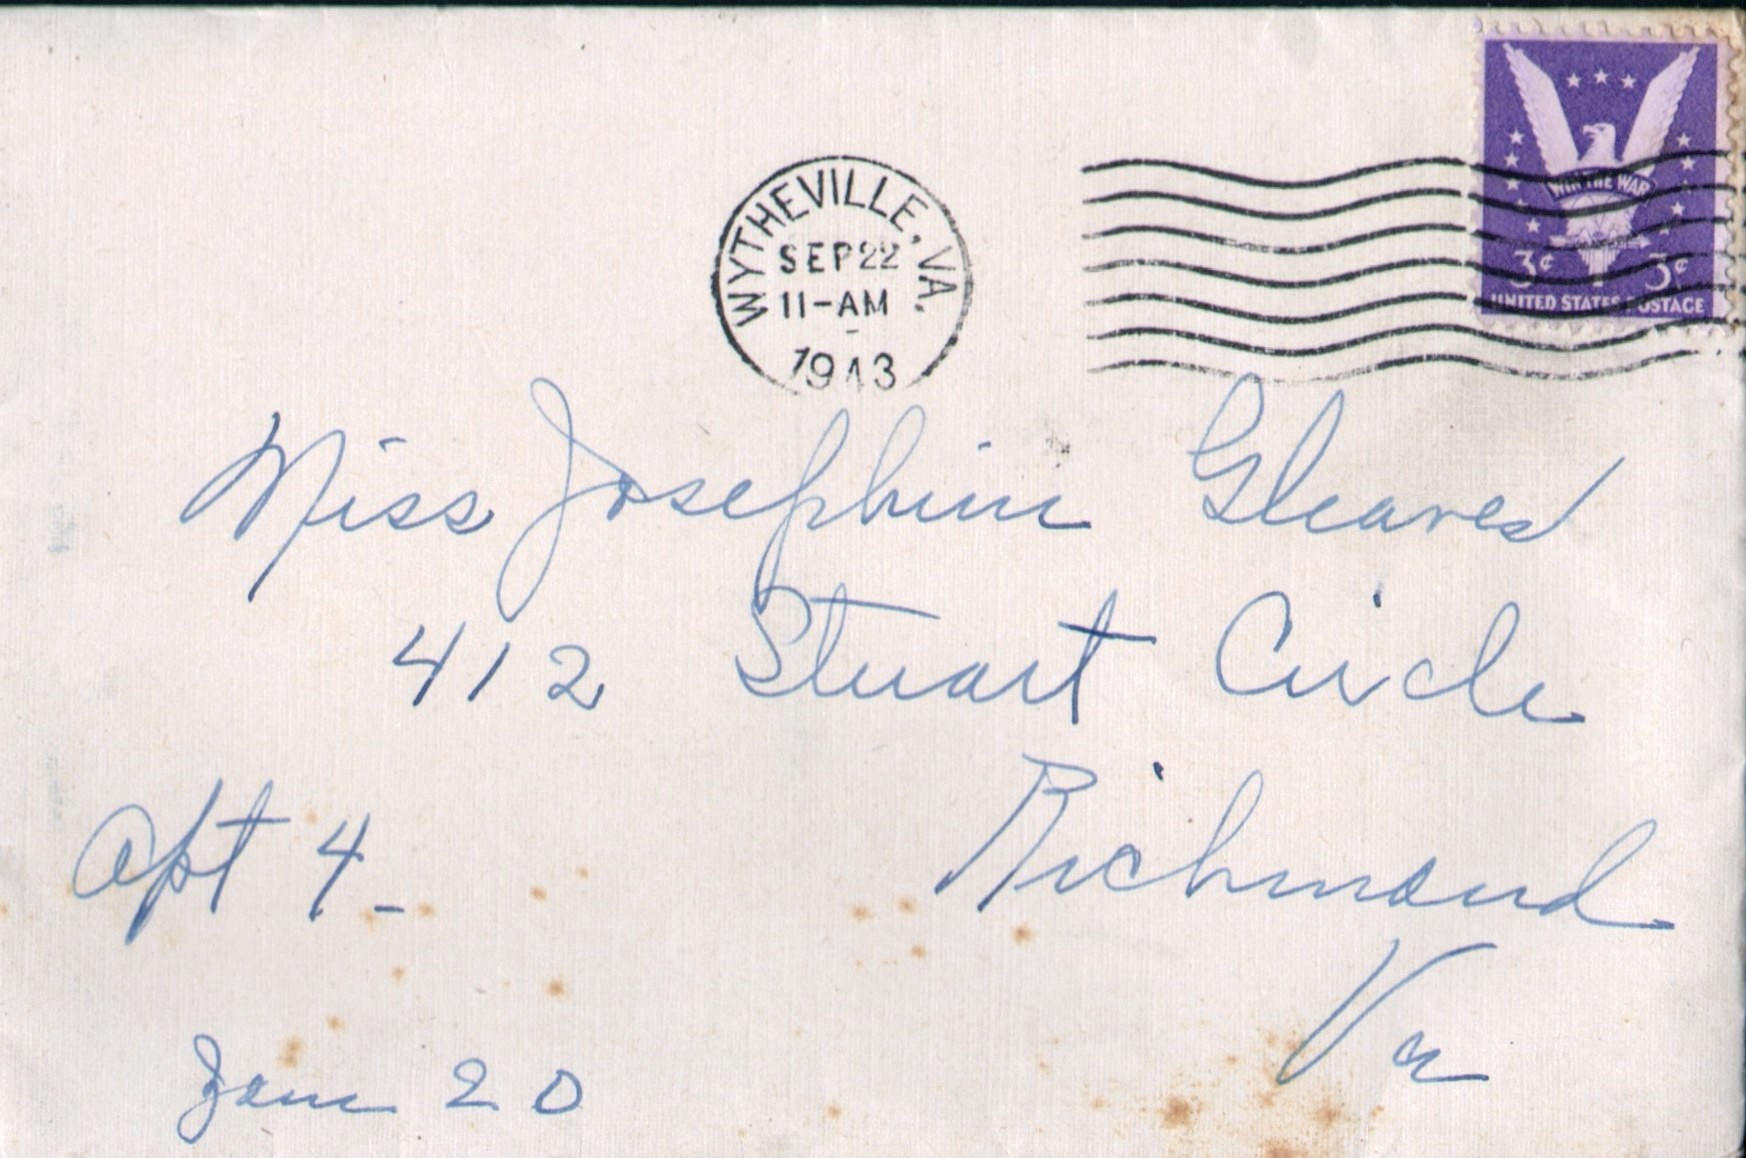 WYTHEVILLE, VA.
SEP 22
11-AM
1943
WIN THE WAR
3¢ 3¢
UNITED STATES POSTAGE
Miss Josephine Gleaves
412 Stuart Circle
Apt 4-
Richmond
Va
Zone 20